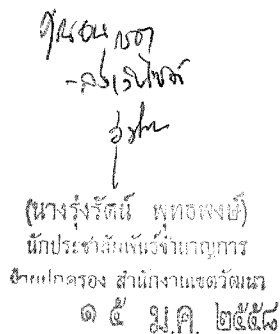 - ลงเว็บไซต์
(นางรุ่งรัตน์ พุทธพงษ์)
นักประชาสัมพันธ์ชำนาญการ
ฝ่ายปกครอง สำนักงานเขตวัฒนา
๑ ๕ ม.ค. ๒๕๕๘